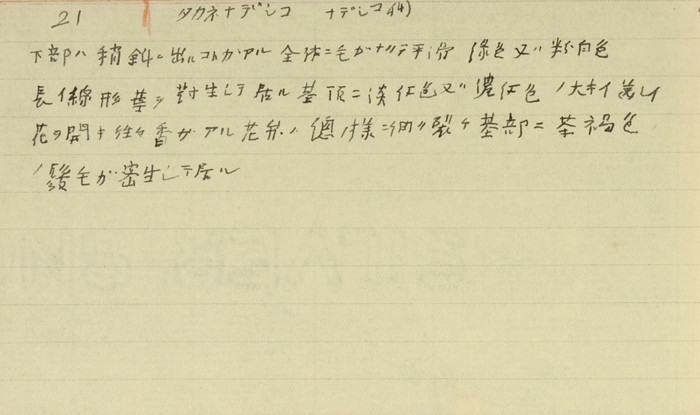 21 タカネナデシコ ナデシコ(4)
下部ハ稍斜ニ出ルコトガアル 全体ニ毛ガナクテ平滑 緑色又ハ粉白色
長イ線形葉ヲ對生シテ居ル 茎頂ニ淡紅色又ハ濃紅色ノ大キイ美シイ
花ヲ開キ往々香ガアル 花弁ハ總ノ様ニ細ク裂ケ基部ニ茶褐色
ノ鬚毛ガ密生シテ居ル